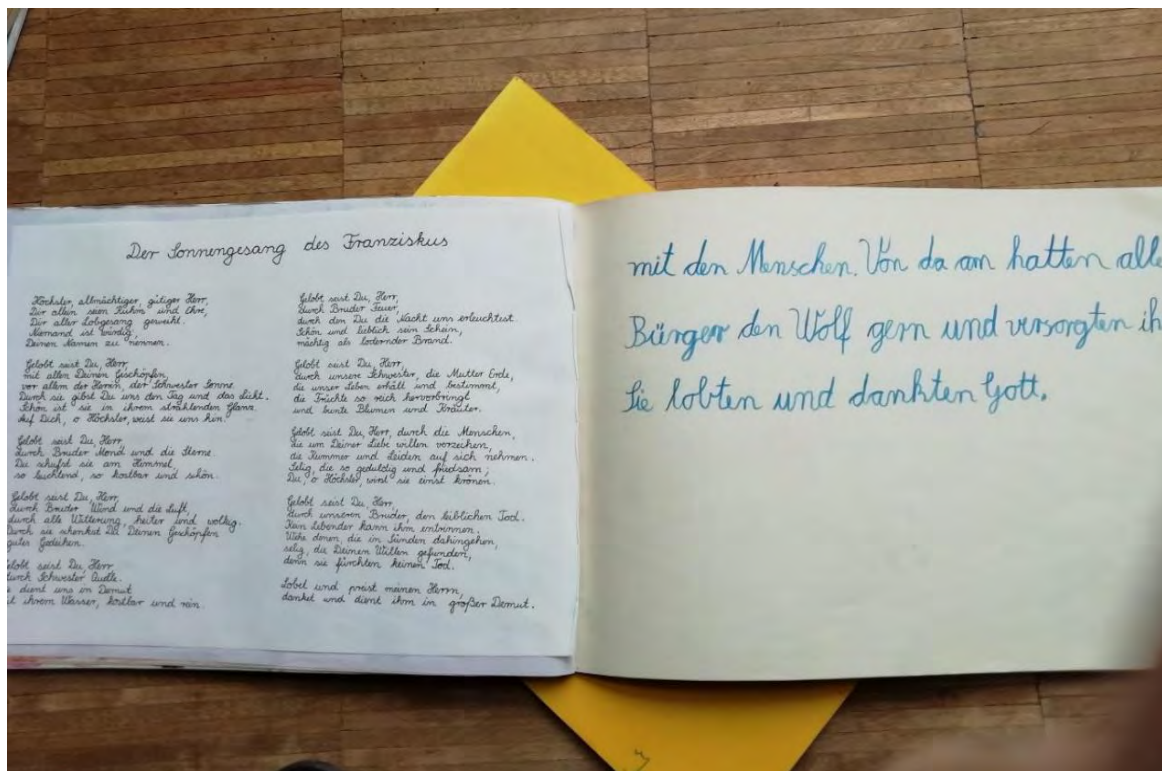 Der Sonnengesang des Franziskus
Höchster, allmächtiger, gütiger Herr,
Dir allein seien Ruhm und Ehre,
Dir aller Lobgesang geweiht.
Niemand ist würdig,
Deinen Namen zu nennen.
Gelobt seist Du, Herr,
mit allen Deinen Geschöpfen,
vor allem der Herrin, der Schwester Sonne.
Durch sie gibst Du uns den Tag und das Licht.
Schön ist sie in ihrem strahlenden Glanz.
Auf Dich, o Höchster, weist sie uns hin.
Gelobt seist Du, Herr,
durch Bruder Mond und die Sterne.
Du schufst sie am Himmel
so leuchtend, so kostbar und schön.
Gelobt seist Du, Herr,
durch Bruder Wind und die Luft,
durch alle Witterung, heiter und wolkig.
Durch sie schenkst Du Deinen Geschöpfen
gutes Gedeihen.
Gelobt seist Du, Herr,
durch Schwester Quelle.
dient uns in Demut
ihrem Wasser, kostbar und rein.
Gelobt seist Du, Herr,
durch Bruder Feuer,
durch den Du die Nacht uns erleuchtest.
Schön und lieblich sein Schein,
mächtig als lodernder Brand.
Gelobt seist Du, Herr,
durch unsere Schwester, die Mutter Erde,
die unser Leben erhält und bestimmt,
die Früchte so reich hervorbringt
und bunte Blumen und Kräuter.
Gelobt seist Du, Herr, durch die Menschen,
die um Deiner Liebe willen verzeihen,
die Kummer und Leiden auf sich nehmen.
Selig, die so geduldig und friedsam;
Du, o Höchster, wirst sie einst krönen.
Gelobt seist Du, Herr,
durch unseren Bruder, den leiblichen Tod.
Kein Lebender kann ihm entrinnen.
Wehe denen, die in Sünden dahingehen,
selig, die Deinen Willen gefunden,
denn sie fürchten keinen Tod.
Lobet und preist meinen Herrn,
danket und dient ihm in großer Demut.
mit den Menschen. Von da an hatten alle
Bürger den Wolf gern und versorgten ih
Sie lobten und dankten Gott.